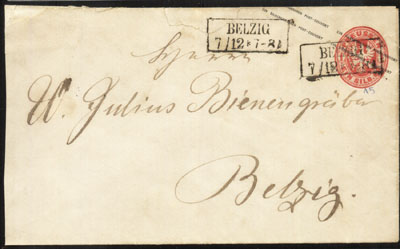 BELZIG
7/12 * 7-8A
BELZIG
7/12
Herrn
W. Julius Bienengräber
Belzig.